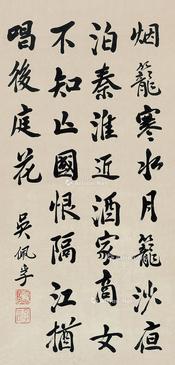 烟籠寒水月籠沙夜
泊秦淮近酒家商女
不知亡國恨隔江猶
唱後庭花
吳佩孚